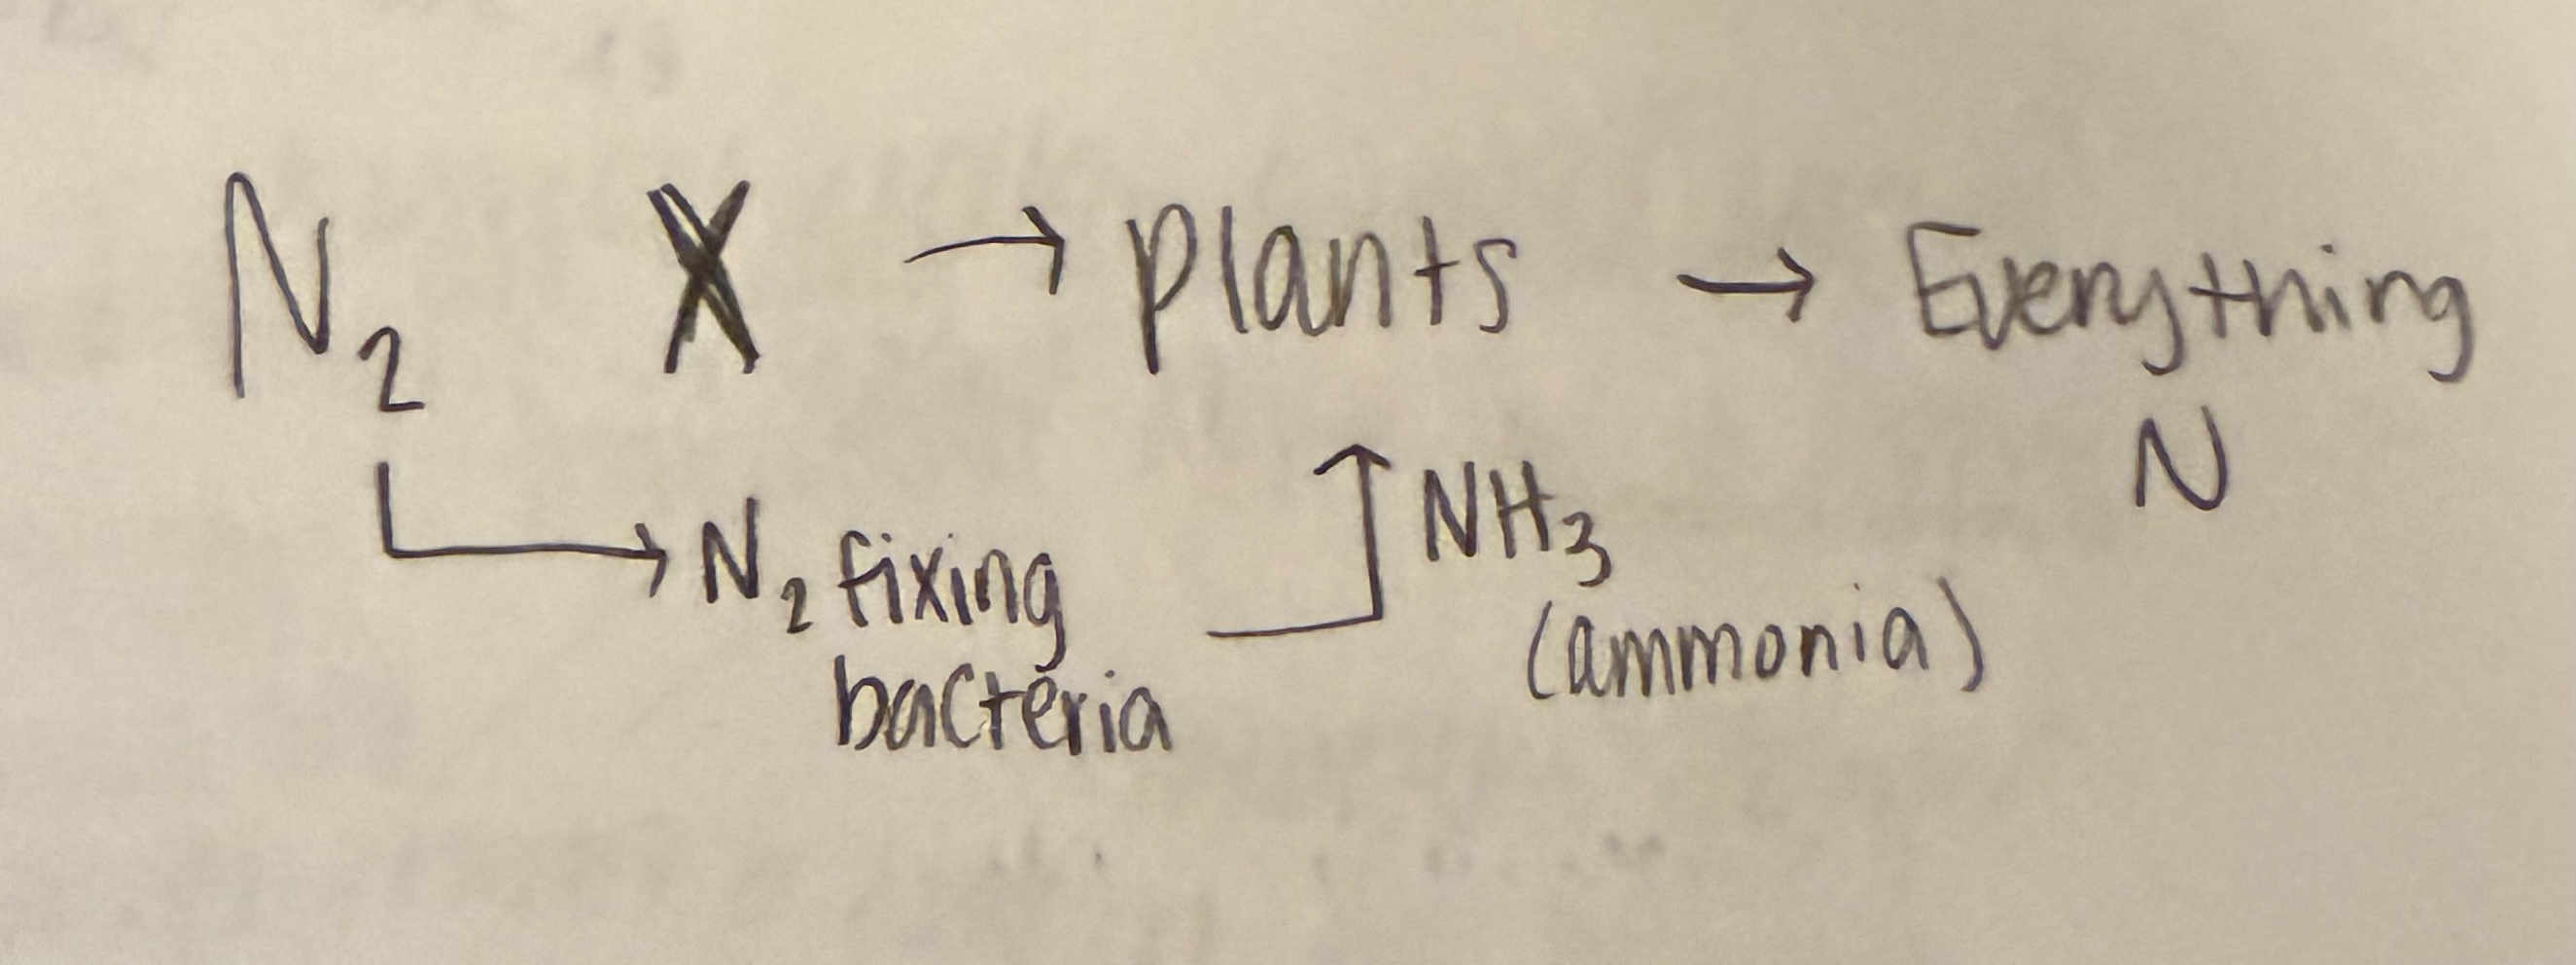 N₂ X → plants → Everything
N
N₂ fixing
bacteria
NH₃
(ammonia)